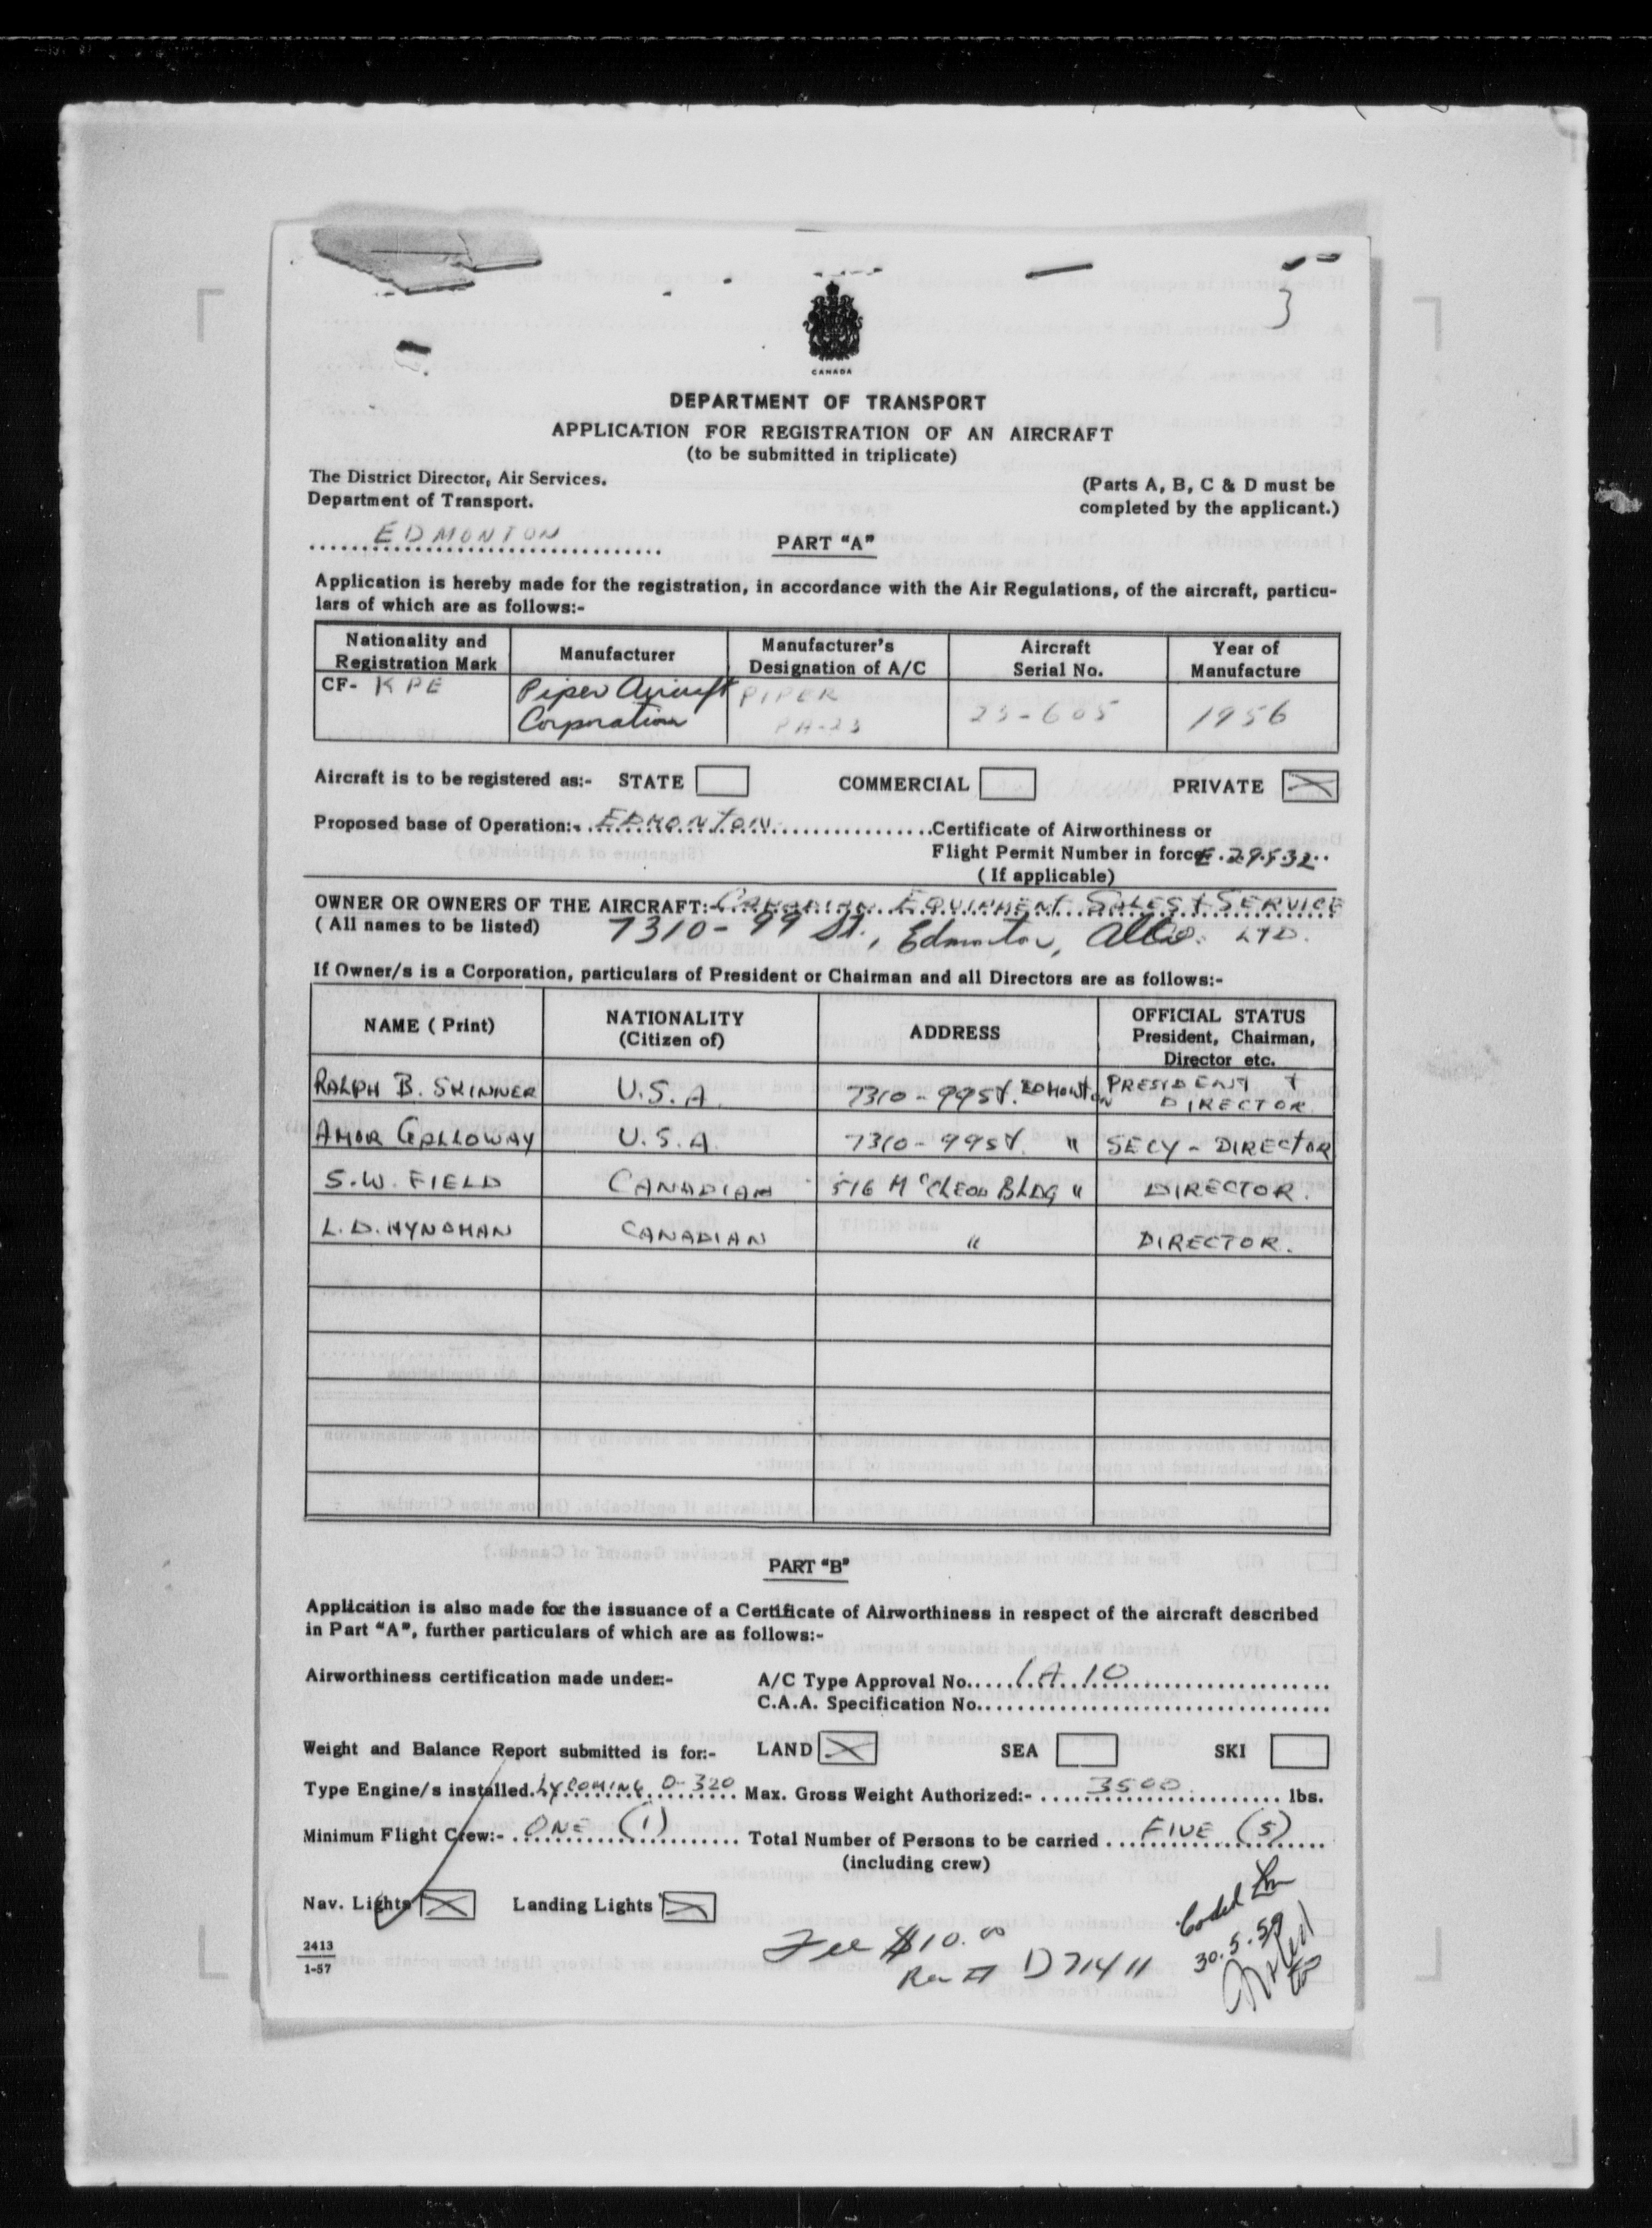 3
CANADA
DEPARTMENT OF TRANSPORT
APPLICATION FOR REGISTRATION OF AN AIRCRAFT
(to be submitted in triplicate)
The District Director, Air Services.
Department of Transport.
(Parts A, B, C & D must be
completed by the applicant.)
EDMONTON
PART "A"
Application is hereby made for the registration, in accordance with the Air Regulations, of the aircraft, particu-
lars of which are as follows:-
Nationality and Registration Mark Manufacturer Manufacturer's Designation of A/C Aircraft Serial No. Year of Manufacture
CF- KPE Piper Aircraft Corporation PIPER PA-23 23-605 1956
Aircraft is to be registered as:- STATE COMMERCIAL PRIVATE X
Proposed base of Operation:- EDMONTON Certificate of Airworthiness or
Flight Permit Number in force
( If applicable)
OWNER OR OWNERS OF THE AIRCRAFT:- CANADIAN EQUIPMENT SALES & SERVICE
( All names to be listed) 7310-99 St., Edmonton, Alta. LTD.
If Owner/s is a Corporation, particulars of President or Chairman and all Directors are as follows:-
NAME ( Print) NATIONALITY (Citizen of) ADDRESS OFFICIAL STATUS President, Chairman, Director etc.
RALPH B. SKINNER U.S.A. 7310-99 St. EDMONTON PRESIDENT & DIRECTOR
AMOR GALLOWAY U.S.A. 7310-99 St. " SECY - DIRECTOR
S.W. FIELD CANADIAN 516 McCLEOD BLDG " DIRECTOR.
L.D. HYNDMAN CANADIAN " DIRECTOR.
PART "B"
Application is also made for the issuance of a Certificate of Airworthiness in respect of the aircraft described
in Part "A", further particulars of which are as follows:-
Airworthiness certification made under:- A/C Type Approval No. 1A10
C.A.A. Specification No.
Weight and Balance Report submitted is for:- LAND X SEA SKI
Type Engine/s installed. LYCOMING O-320 Max. Gross Weight Authorized:- 3500 lbs.
Minimum Flight Crew:- ONE (1) Total Number of Persons to be carried FIVE (5)
(including crew)
Nav. Lights X Landing Lights X
Fee $10.00
D71411
30.5.59
2413
1-57